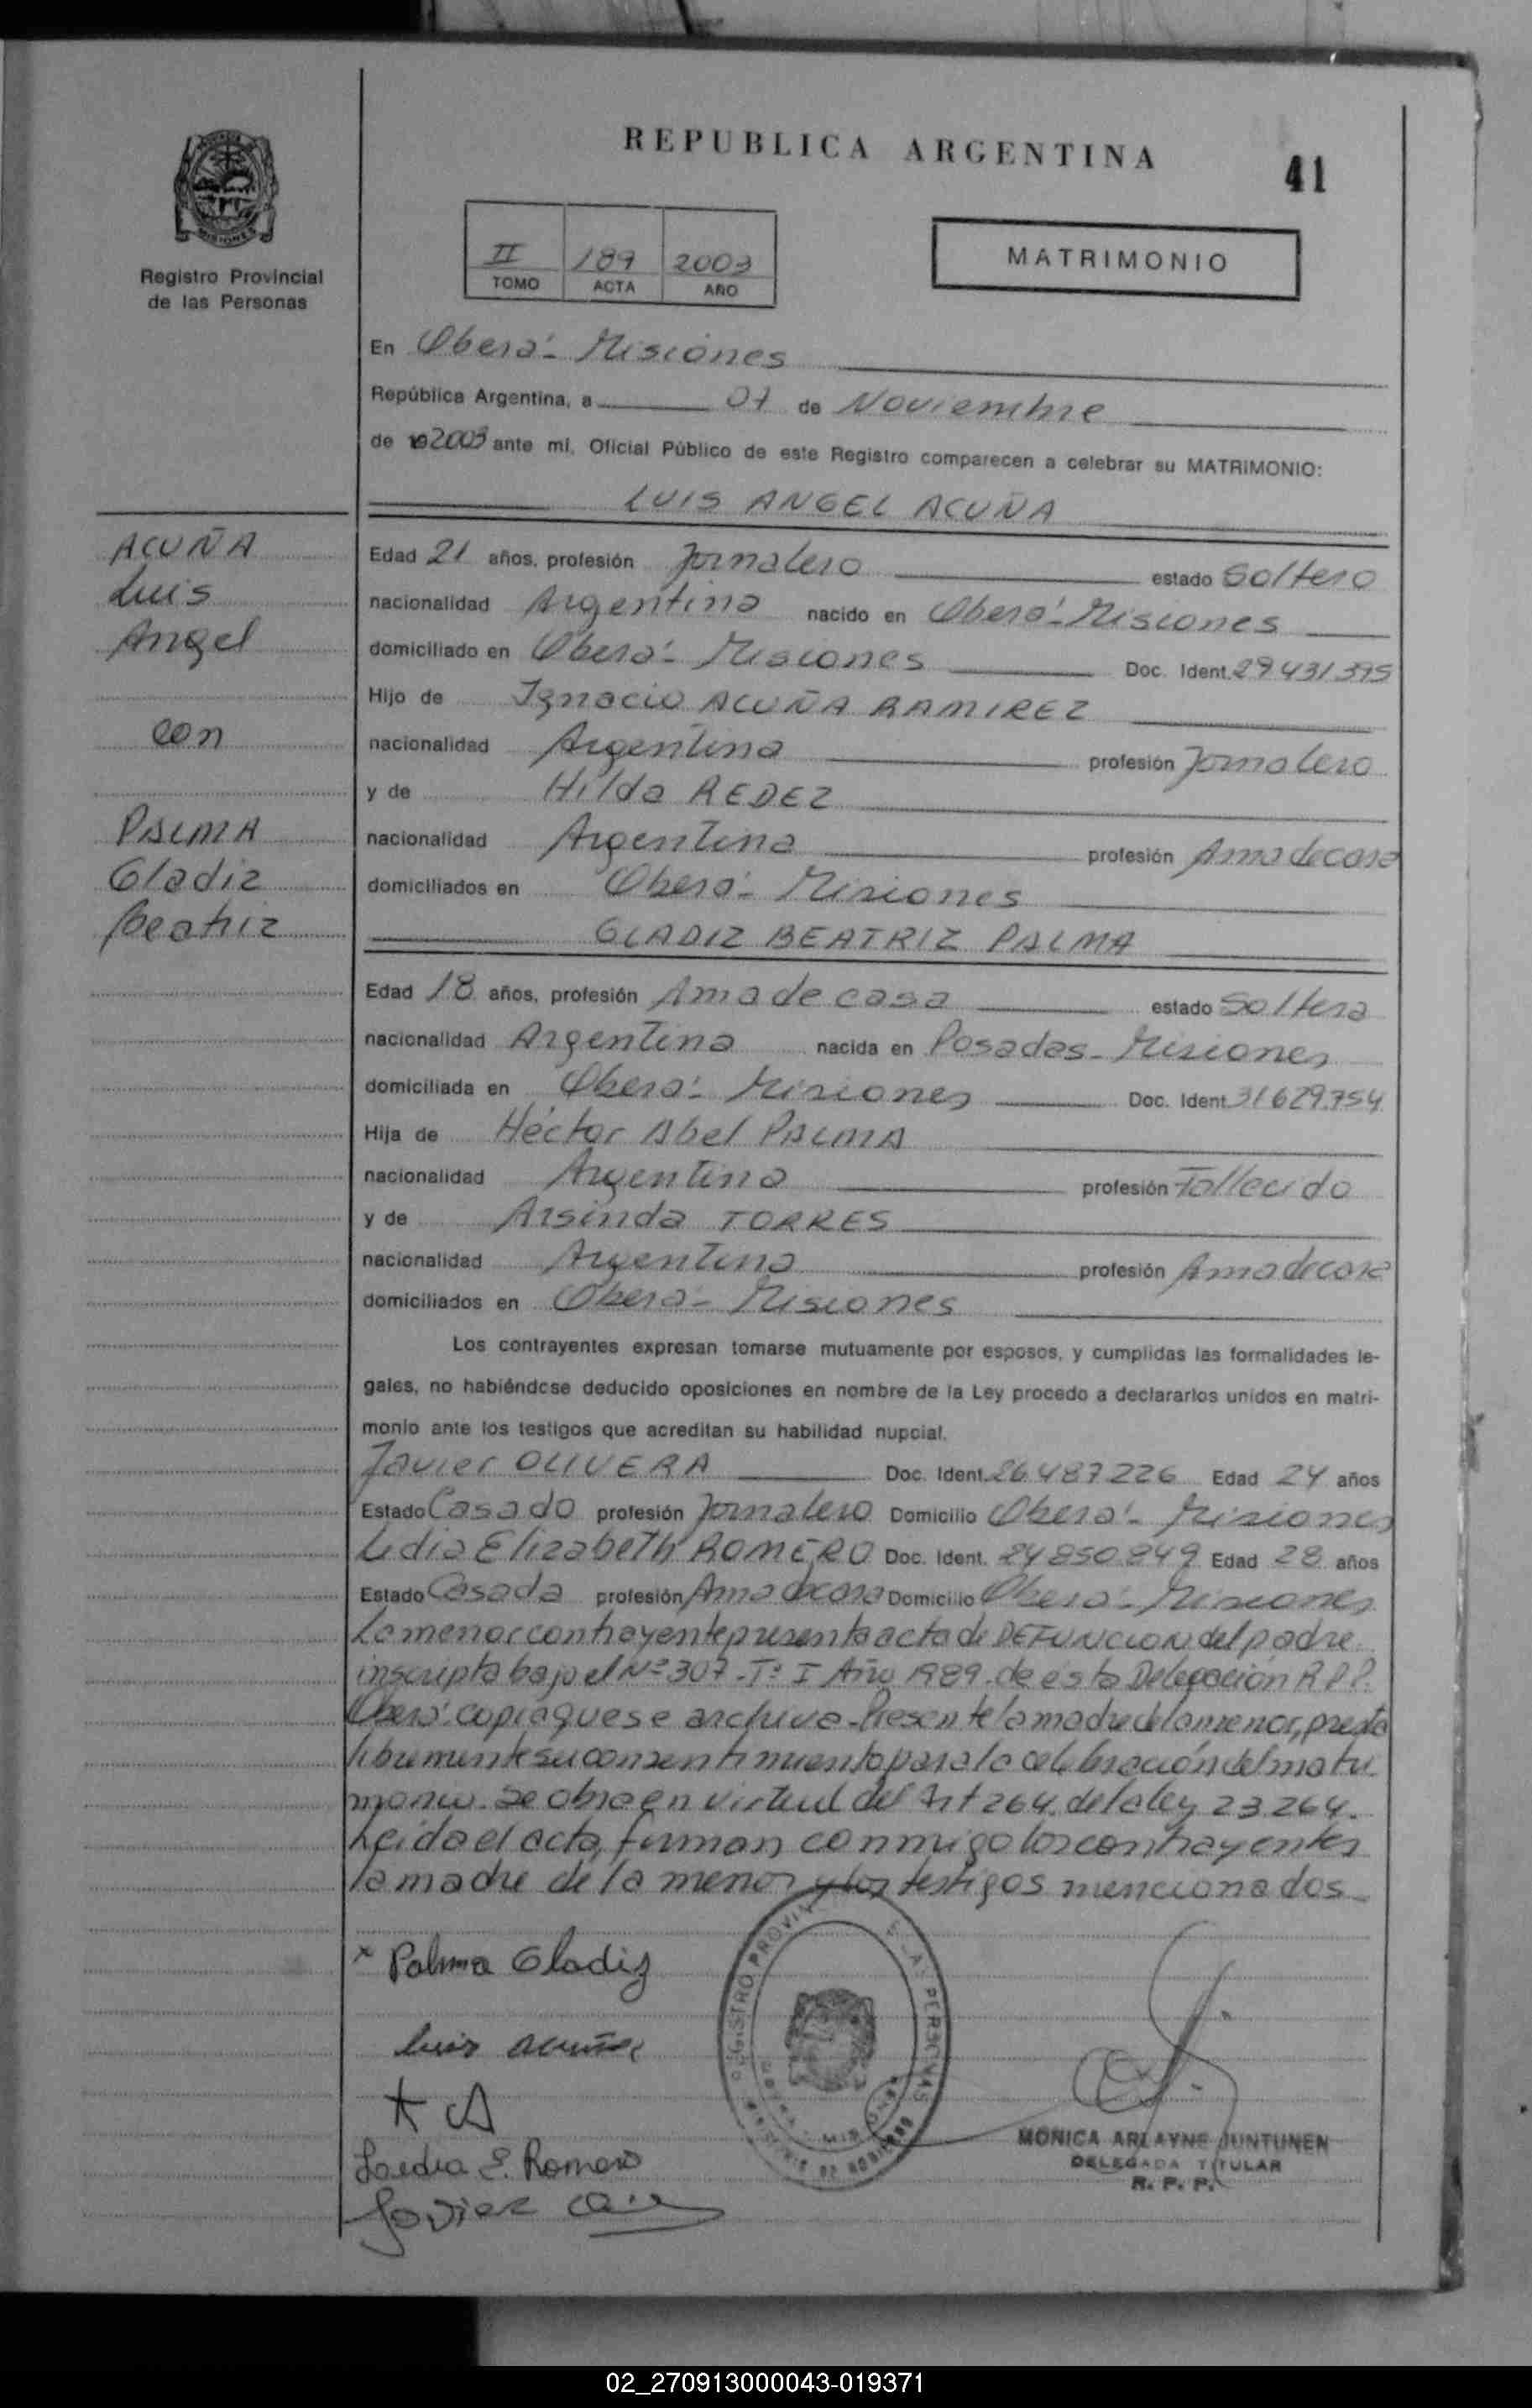 REPUBLICA ARGENTINA
41
MISIONES
Registro Provincial
de las Personas
II 187 2003
TOMO ACTA AÑO
MATRIMONIO
En Oberá - Misiones
República Argentina, a 07 de Noviembre
de 192003 ante mi, Oficial Público de este Registro comparecen a celebrar su MATRIMONIO:
LUIS ANGEL ACUÑA
ACUÑA
Luis
Angel
con
PALMA
Gladiz
Beatriz
Edad 21 años, profesión Jornalero estado Soltero
nacionalidad Argentina nacido en Oberá - Misiones
domiciliado en Oberá - Misiones Doc. Ident. 29.431.395
Hijo de Ignacio ACUÑA RAMIREZ
nacionalidad Argentina profesión Jornalero
y de Hilda REDEZ
nacionalidad Argentina profesión Ama de casa
domiciliados en Oberá - Misiones
GLADIZ BEATRIZ PALMA
Edad 18 años, profesión Ama de casa estado Soltera
nacionalidad Argentina nacida en Posadas - Misiones
domiciliada en Oberá - Misiones Doc. Ident. 31.629.754
Hija de Héctor Abel PALMA
nacionalidad Argentina profesión Fallecido
y de Arsinda TORRES
nacionalidad Argentina profesión Ama de casa
domiciliados en Oberá - Misiones
Los contrayentes expresan tomarse mutuamente por esposos, y cumplidas las formalidades le-
gales, no habiéndose deducido oposiciones en nombre de la Ley procedo a declararlos unidos en matri-
monio ante los testigos que acreditan su habilidad nupcial.
Javier OLIVERA Doc. Ident. 26.487.226 Edad 24 años
Estado Casado profesión Jornalero Domicilio Oberá - Misiones
Lidia Elizabeth ROMERO Doc. Ident. 24.850.849 Edad 28 años
Estado Casada profesión Ama de casa Domicilio Oberá - Misiones
La menor contrayente presenta acta de DEFUNCION del padre
inscripta bajo el Nº 307 - Tº I Año 1989 - de ésta Delegación R.P.P.
Oberá copia que se archiva - Presente la madre de la menor, presta
libremente su consentimiento para la celebración del matri
monio. Se obra en virtud del Art 264. de la ley 23.264.
Leída el acta, firman conmigo los contrayentes
la madre de la menor y los testigos mencionados -
x Palma Gladiz
Luis Acuña
Lidia E. Romero
Javier
REGISTRO PROVINCIAL DE LAS PERSONAS
MONICA ARLAYNE JUNTUNEN
DELEGADA TITULAR
R. P. P.
02_270913000043-019371